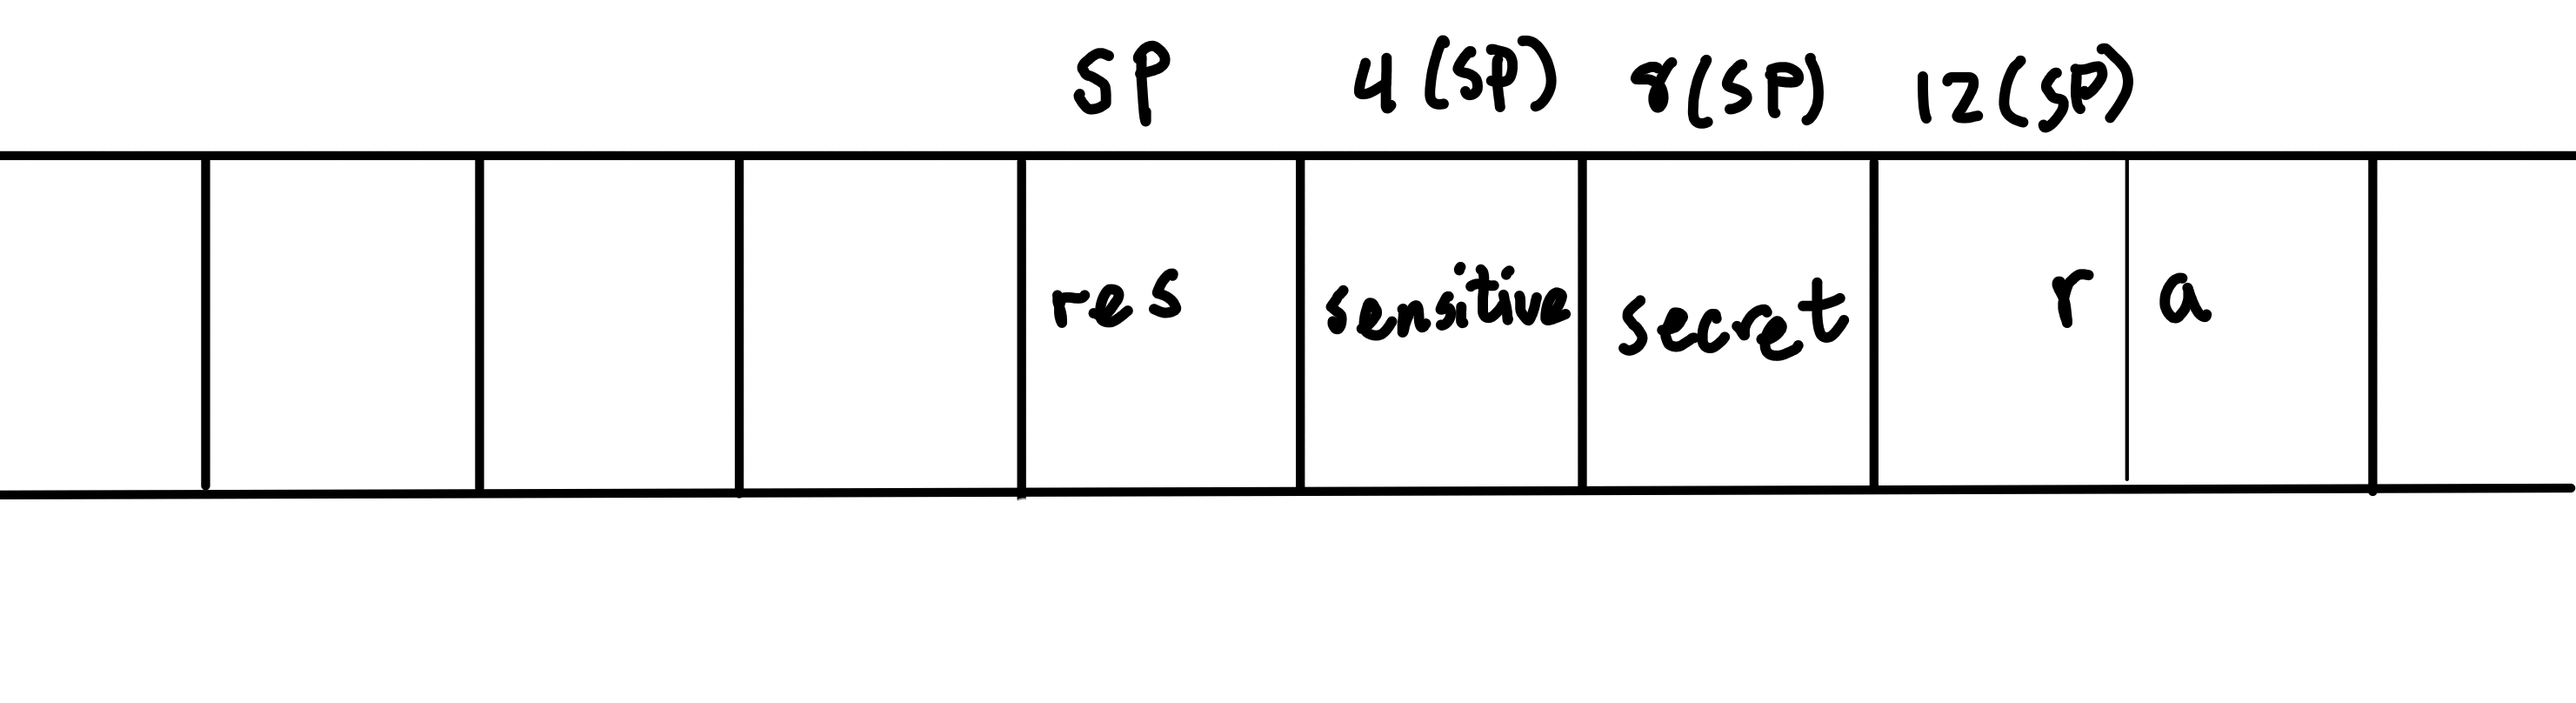 SP 4(SP) 8(SP) 12(SP)
res sensitive secret r a